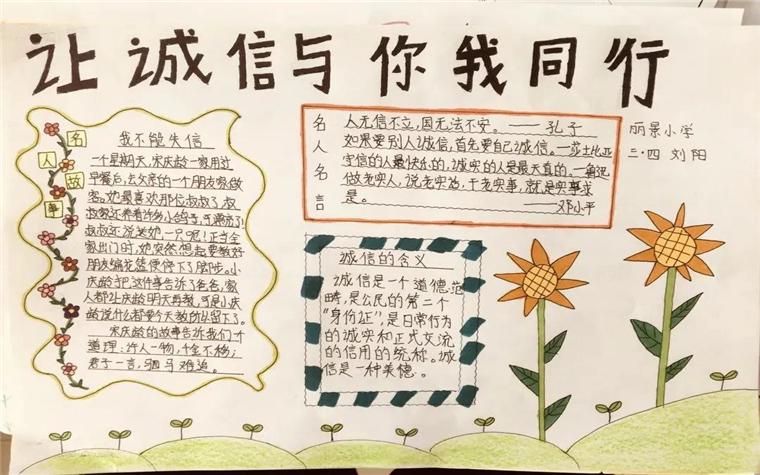 让诚信与你我同行
名人故事
我不能失信
一个星期天,宋庆龄一家用过
早餐后,去父亲的一个朋友家做
客。她最喜欢那位叔叔了,叔
叔家还养着许多小鸽子,可漂亮了!
叔叔还说送她一只呢!正当全
家出门时,她突然想起要教好
朋友编花篮便停下了脚步。小
庆龄把这件事告诉了爸爸,家
人都让庆龄明天再教,可是小庆
龄说什么都要今天教所以留下了。
宋庆龄的故事告诉我们个
道理:许人一物,千金不移;
君子一言,驷马难追。
名人名言
人无信不立,国无法不安。——孔子
如果要别人诚信,首先要自己诚信。—莎士比亚
守信的人最快乐的,诚实的人是最天真的。—
做老实人,说老实话,干老实事,就是实事求
是。——邓小平
丽景小学
三·四 刘阳
诚信的含义
诚信是一个道德范
畴,是公民的第二个
“身份证”,是日常行为
的诚实和正式交流
的信用的统称。诚
信是一种美德。